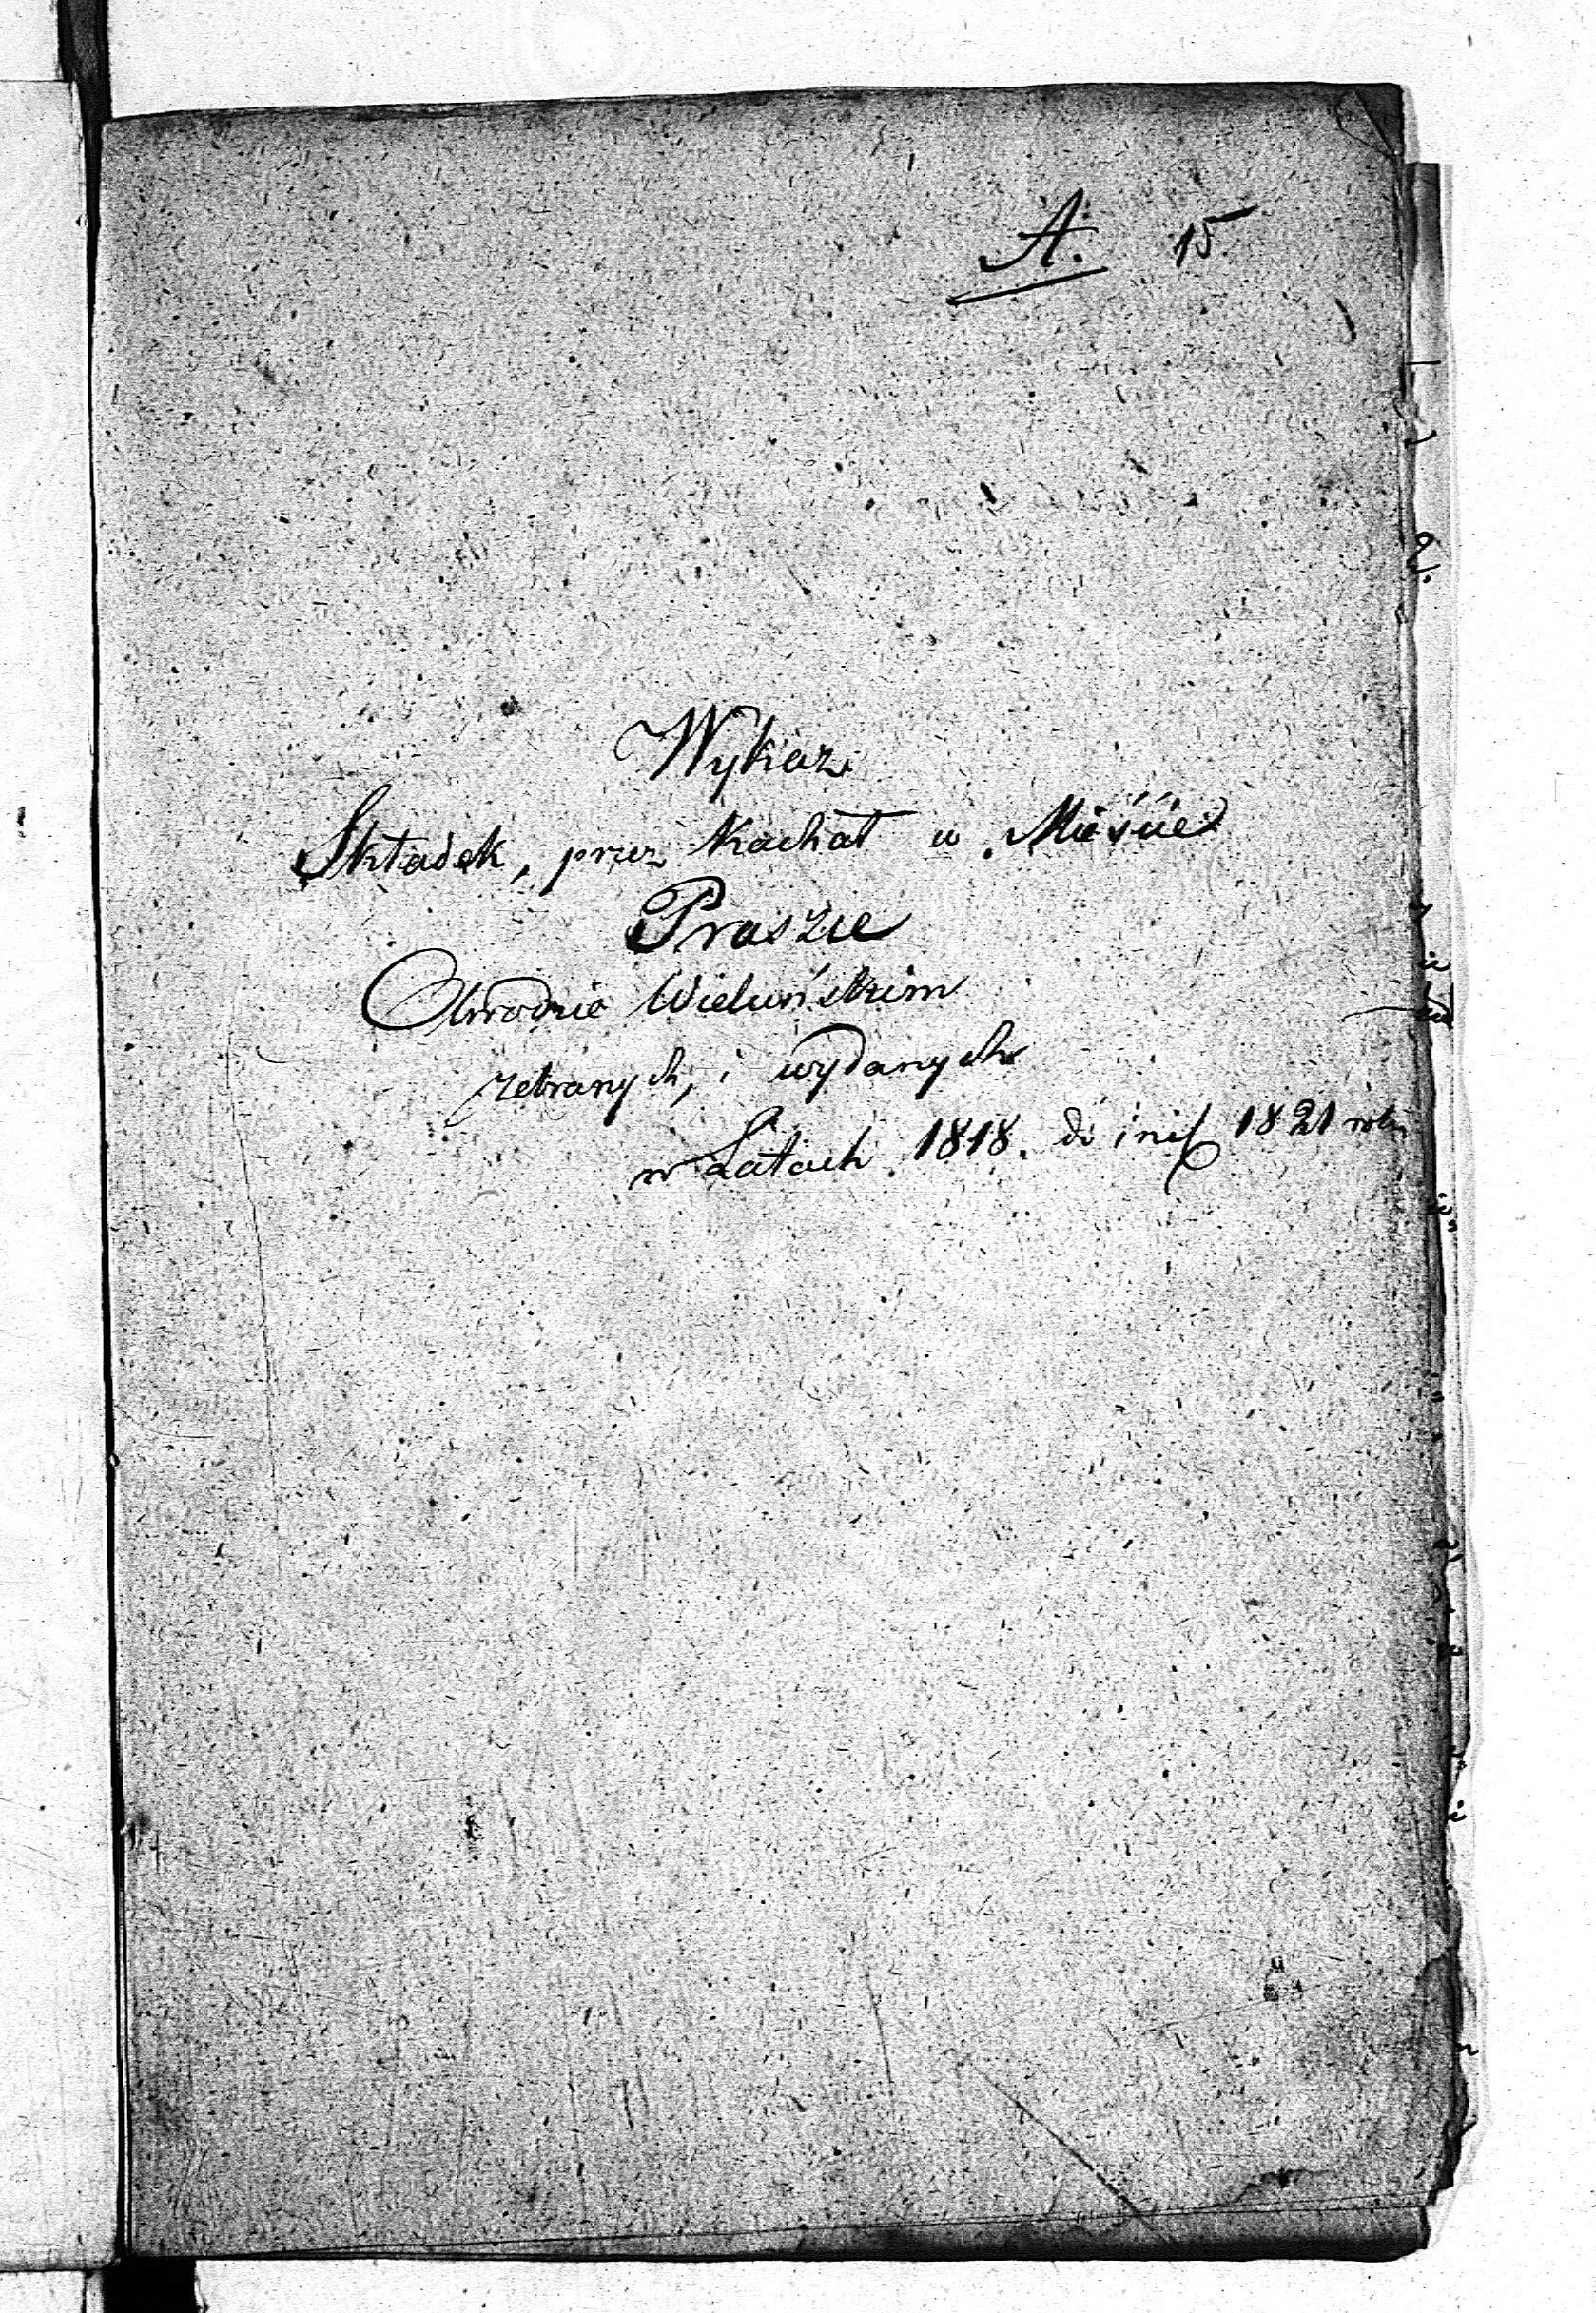 A. 15
Wykaz
Składek, przez Kachał w Mieście
Praszce
Obwodzie Wieluńskim
zebranych, i wydanych
w Latach 1818. do 1821 roku